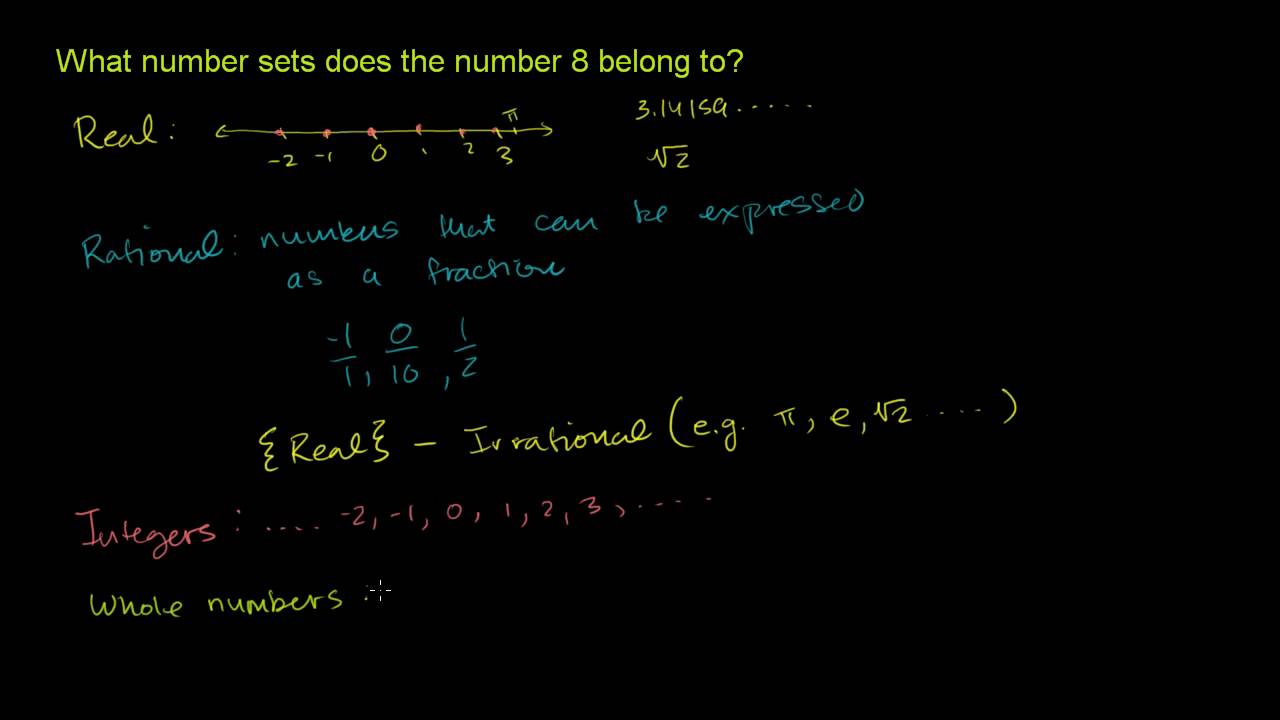 What number sets does the number 8 belong to?
Real: -2 -1 0 1 2 3 π 3.14159.....
√2
Rational: numbers that can be expressed
as a fraction
-1/1, 0/10, 1/2
{Real} - Irrational (e.g. π, e, √2 ....)
Integers: .... -2, -1, 0, 1, 2, 3, .....
Whole numbers :